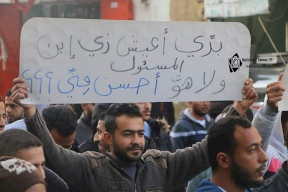 بدّي أعيش زي إبن
المسئول
ولا هوَّ أحسن منِّي ؟؟؟